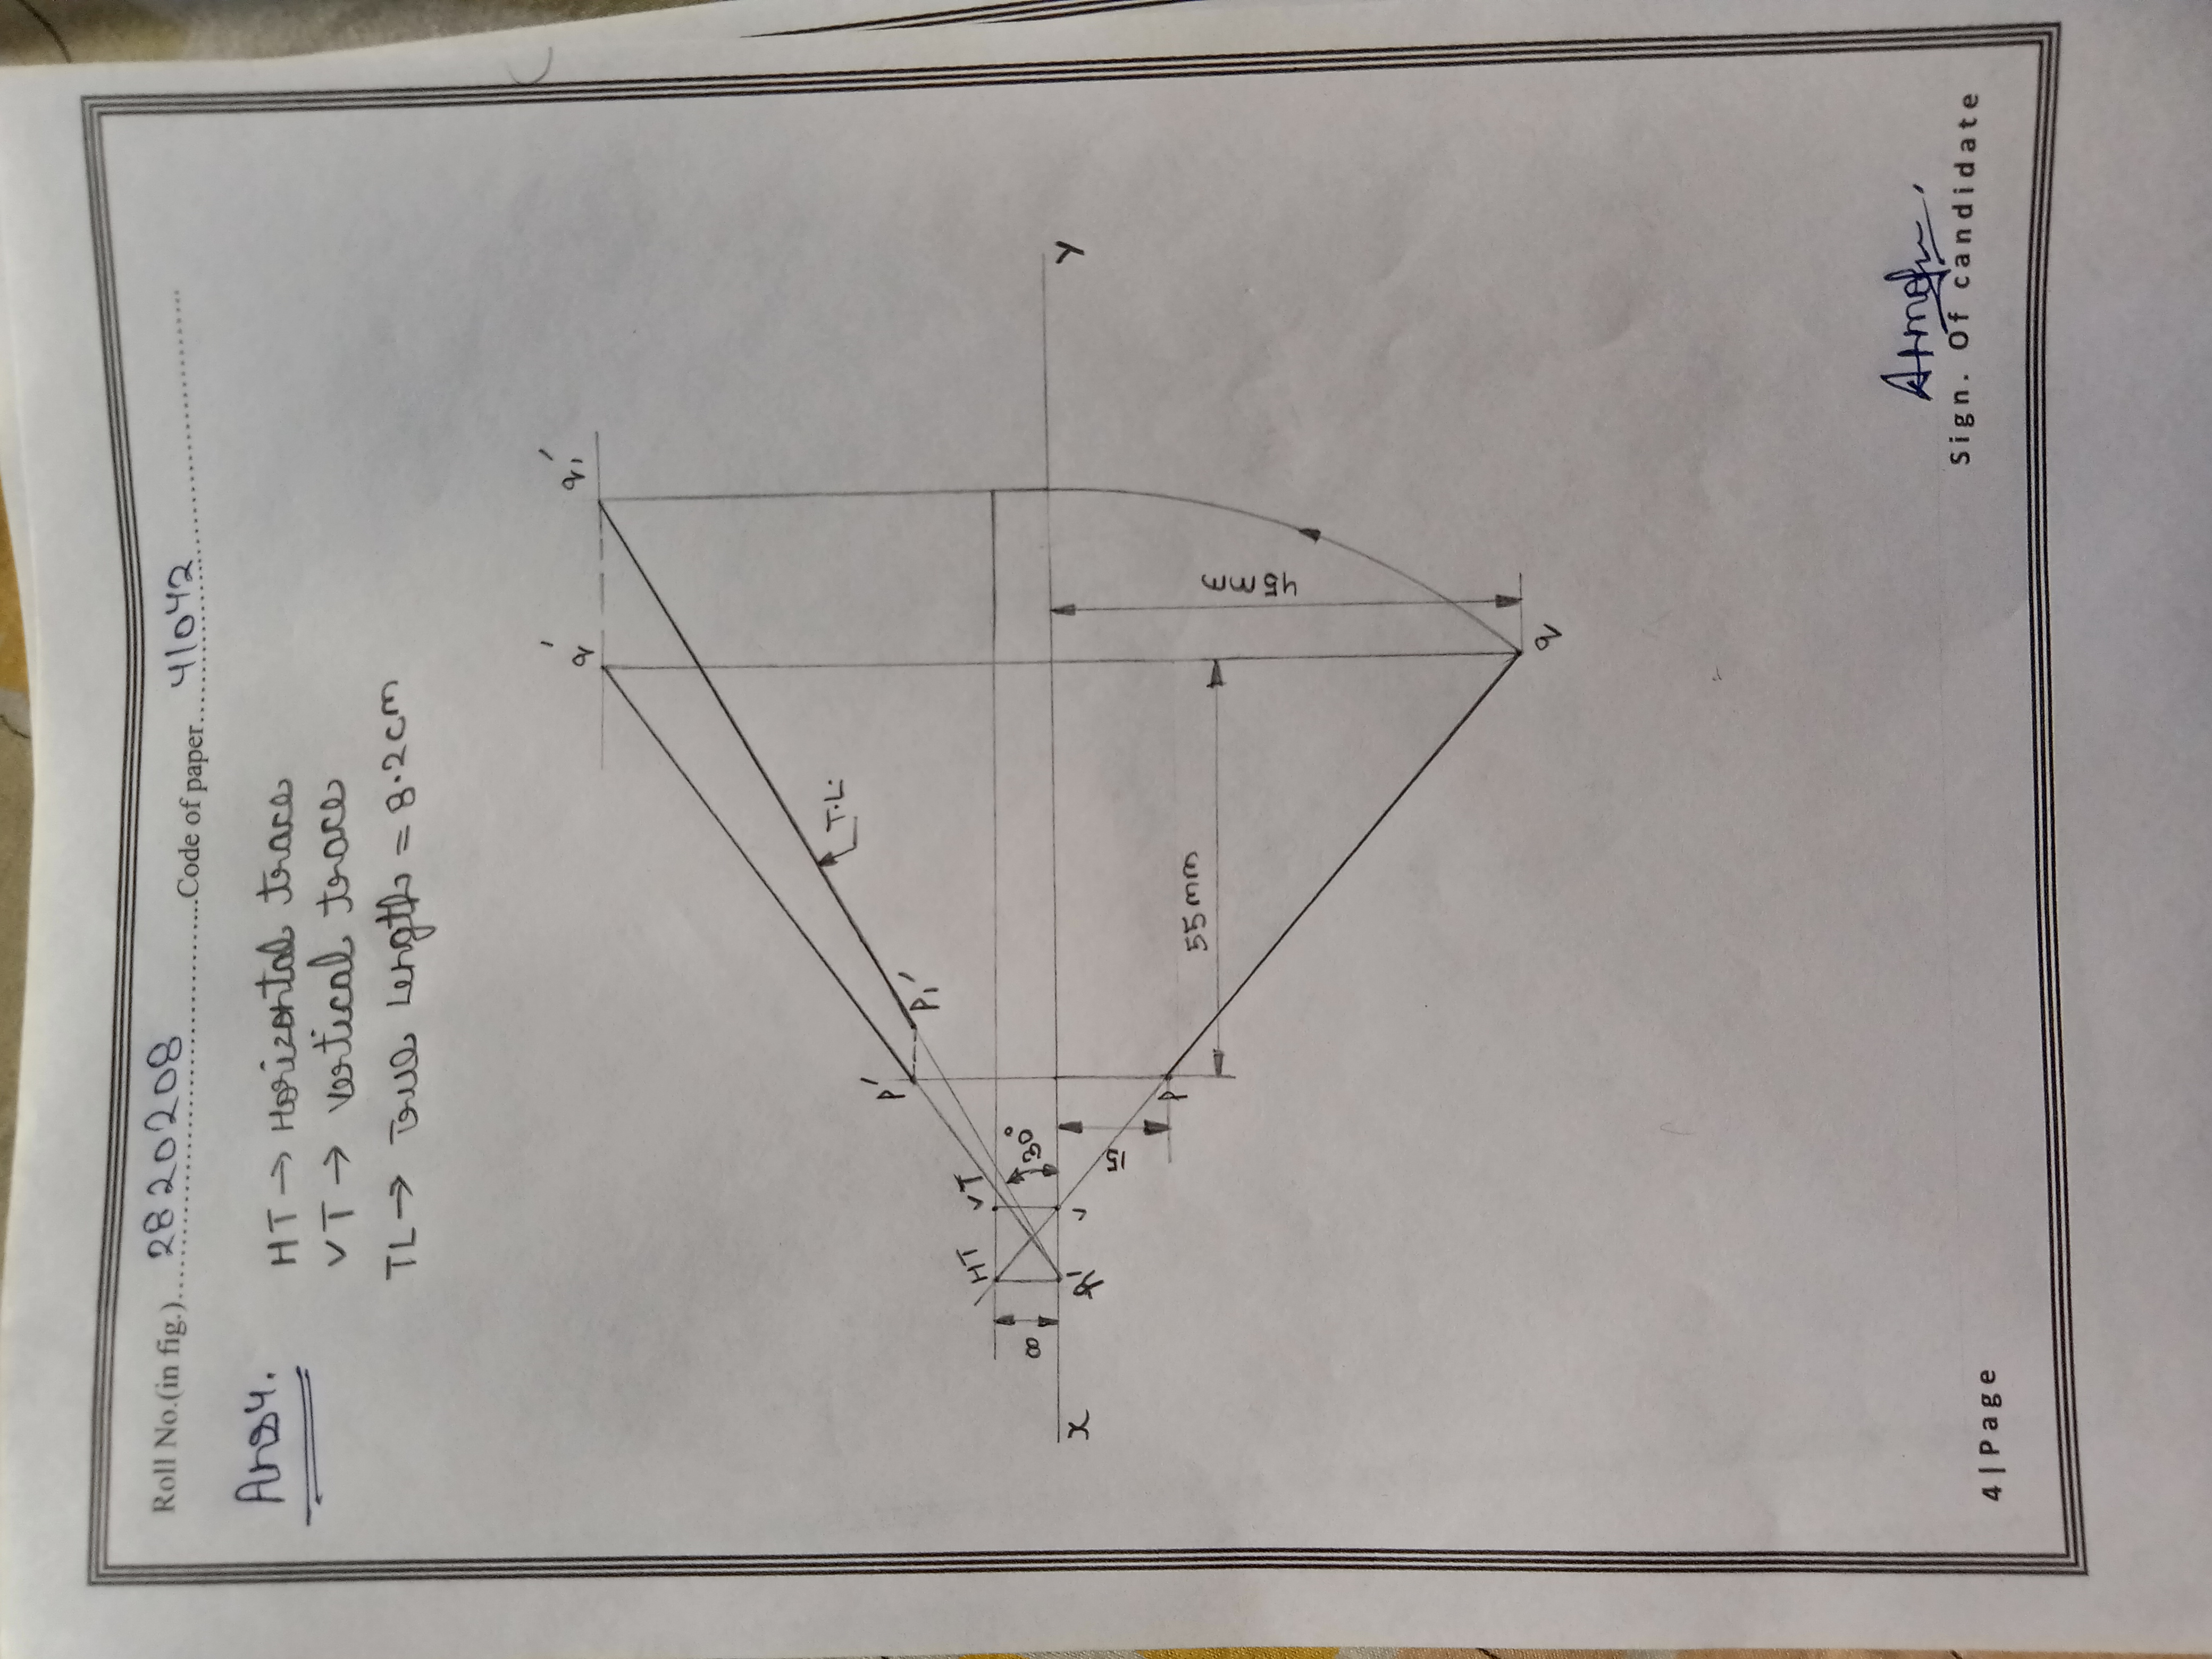 Roll No.(in fig.)....2820208...............Code of paper....41042...............................
Ans4.
HT → Horizontal trace
VT → Vertical trace
TL → True length = 8.2cm
q'
q1'
T.L.
p'
p1'
HT
VT
30°
8
x
h'
v
15
p
55mm
45mm
q
Y
4|Page
Sign. Of candidate